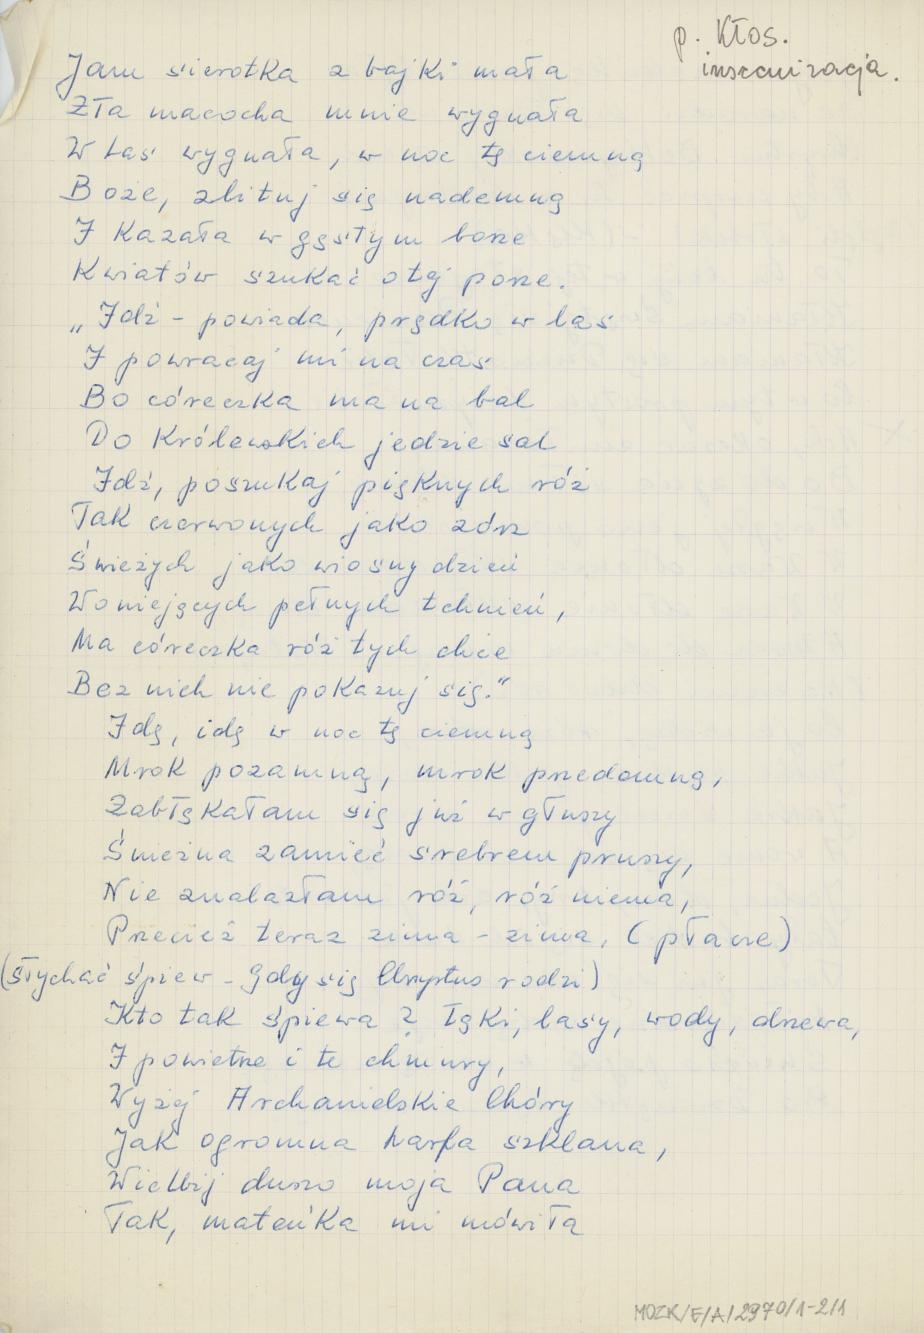 p. Kłos.
inscenizacja.
Jam sierotka z bajki mała
Zła macocha mnie wygnała
W las wygnała, w noc tę ciemną
Boże, zlituj się nademną
I kazała w gęstym borze
Kwiatów szukać o tej porze.
„Idź - powiada, prędko w las
I powracaj mi na czas
Bo córeczka ma na bal
Do Królewskich jedzie sal
Idź, poszukaj pięknych róż
Tak czerwonych jako zórz
Świeżych jako wiosny dzień
Woniejących pełnych tchnień,
Ma córeczka róż tych chce
Bez nich nie pokazuj się."
Idę, idę w noc tę ciemną
Mrok pozamną, mrok przedemną,
Zabłąkałam się już w głuszy
Śnieżna zamieć srebrem pruszy,
Nie znalazłam róż, róż niema,
Przecież teraz zima - zima, (płacze)
(Słychać śpiew - Gdy się Chrystus rodzi)
Kto tak śpiewa? Łąki, lasy, wody, drzewa,
I powietrze i te chmury,
Wyżej Archanielskie Chóry
Jak ogromna harfa szklana,
Wielbij duszo moja Pana
Tak, mateńka mi mówiła
MOZK/E/A/2970/1-2/1